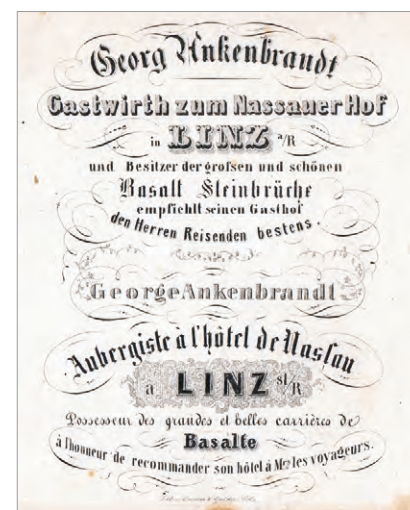 Georg Ankenbrandt
Gastwirth zum Nassauer Hof
in LINZ a/R
und Besitzer der großen und schönen
Basalt Steinbrüche
empfiehlt seinen Gasthof
den Herren Reisenden bestens
George Ankenbrandt
Aubergiste à l'hôtel de Nassau
a LINZ sl/R
Possesseur des grandes et belles carrières de
Basalte
à l'honneur de recommander son hôtel à Mrs les voyageurs.